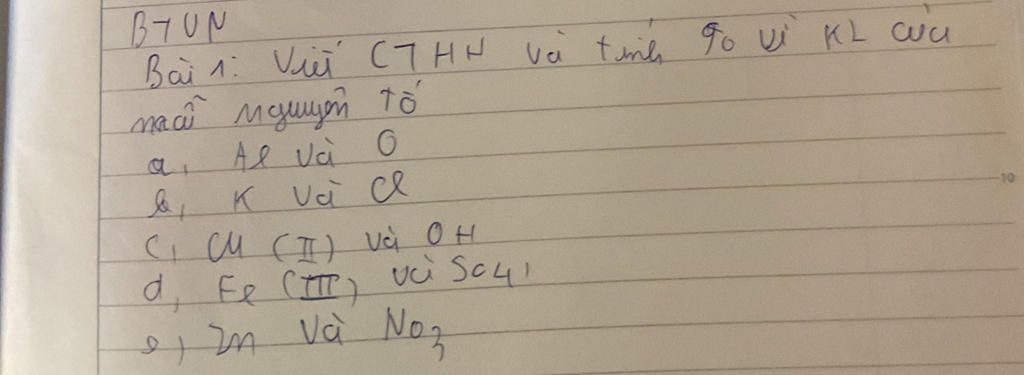 BTVN
Bài 1: Viết CTHH và tính % về KL của
mỗi nguyên tố
a, Al và O
b, K và Cl
c, Cu (II) và OH
d, Fe (III) và SO4,
e, Zn và NO3
10